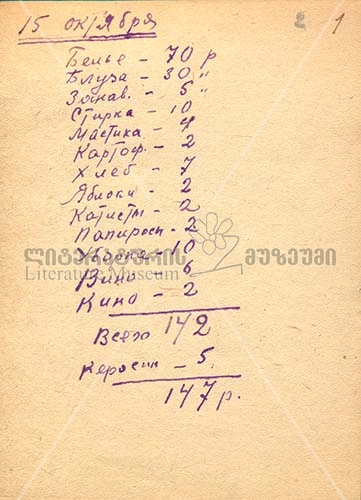 2 1
15 октября
Белье - 70 р
Блуза - 30 "
Занав. - 5 "
Стирка - 10
Мастика - 4
Картоф. - 2
Хлеб - 7
Яблоки - 2
- 2
Папиросы - 2
ლიტერატურის მუზეუმი
Уборка - 10
Literature Museum
Вино - 6
Кино - 2
Всего 142
Керосин - 5.
147 р.